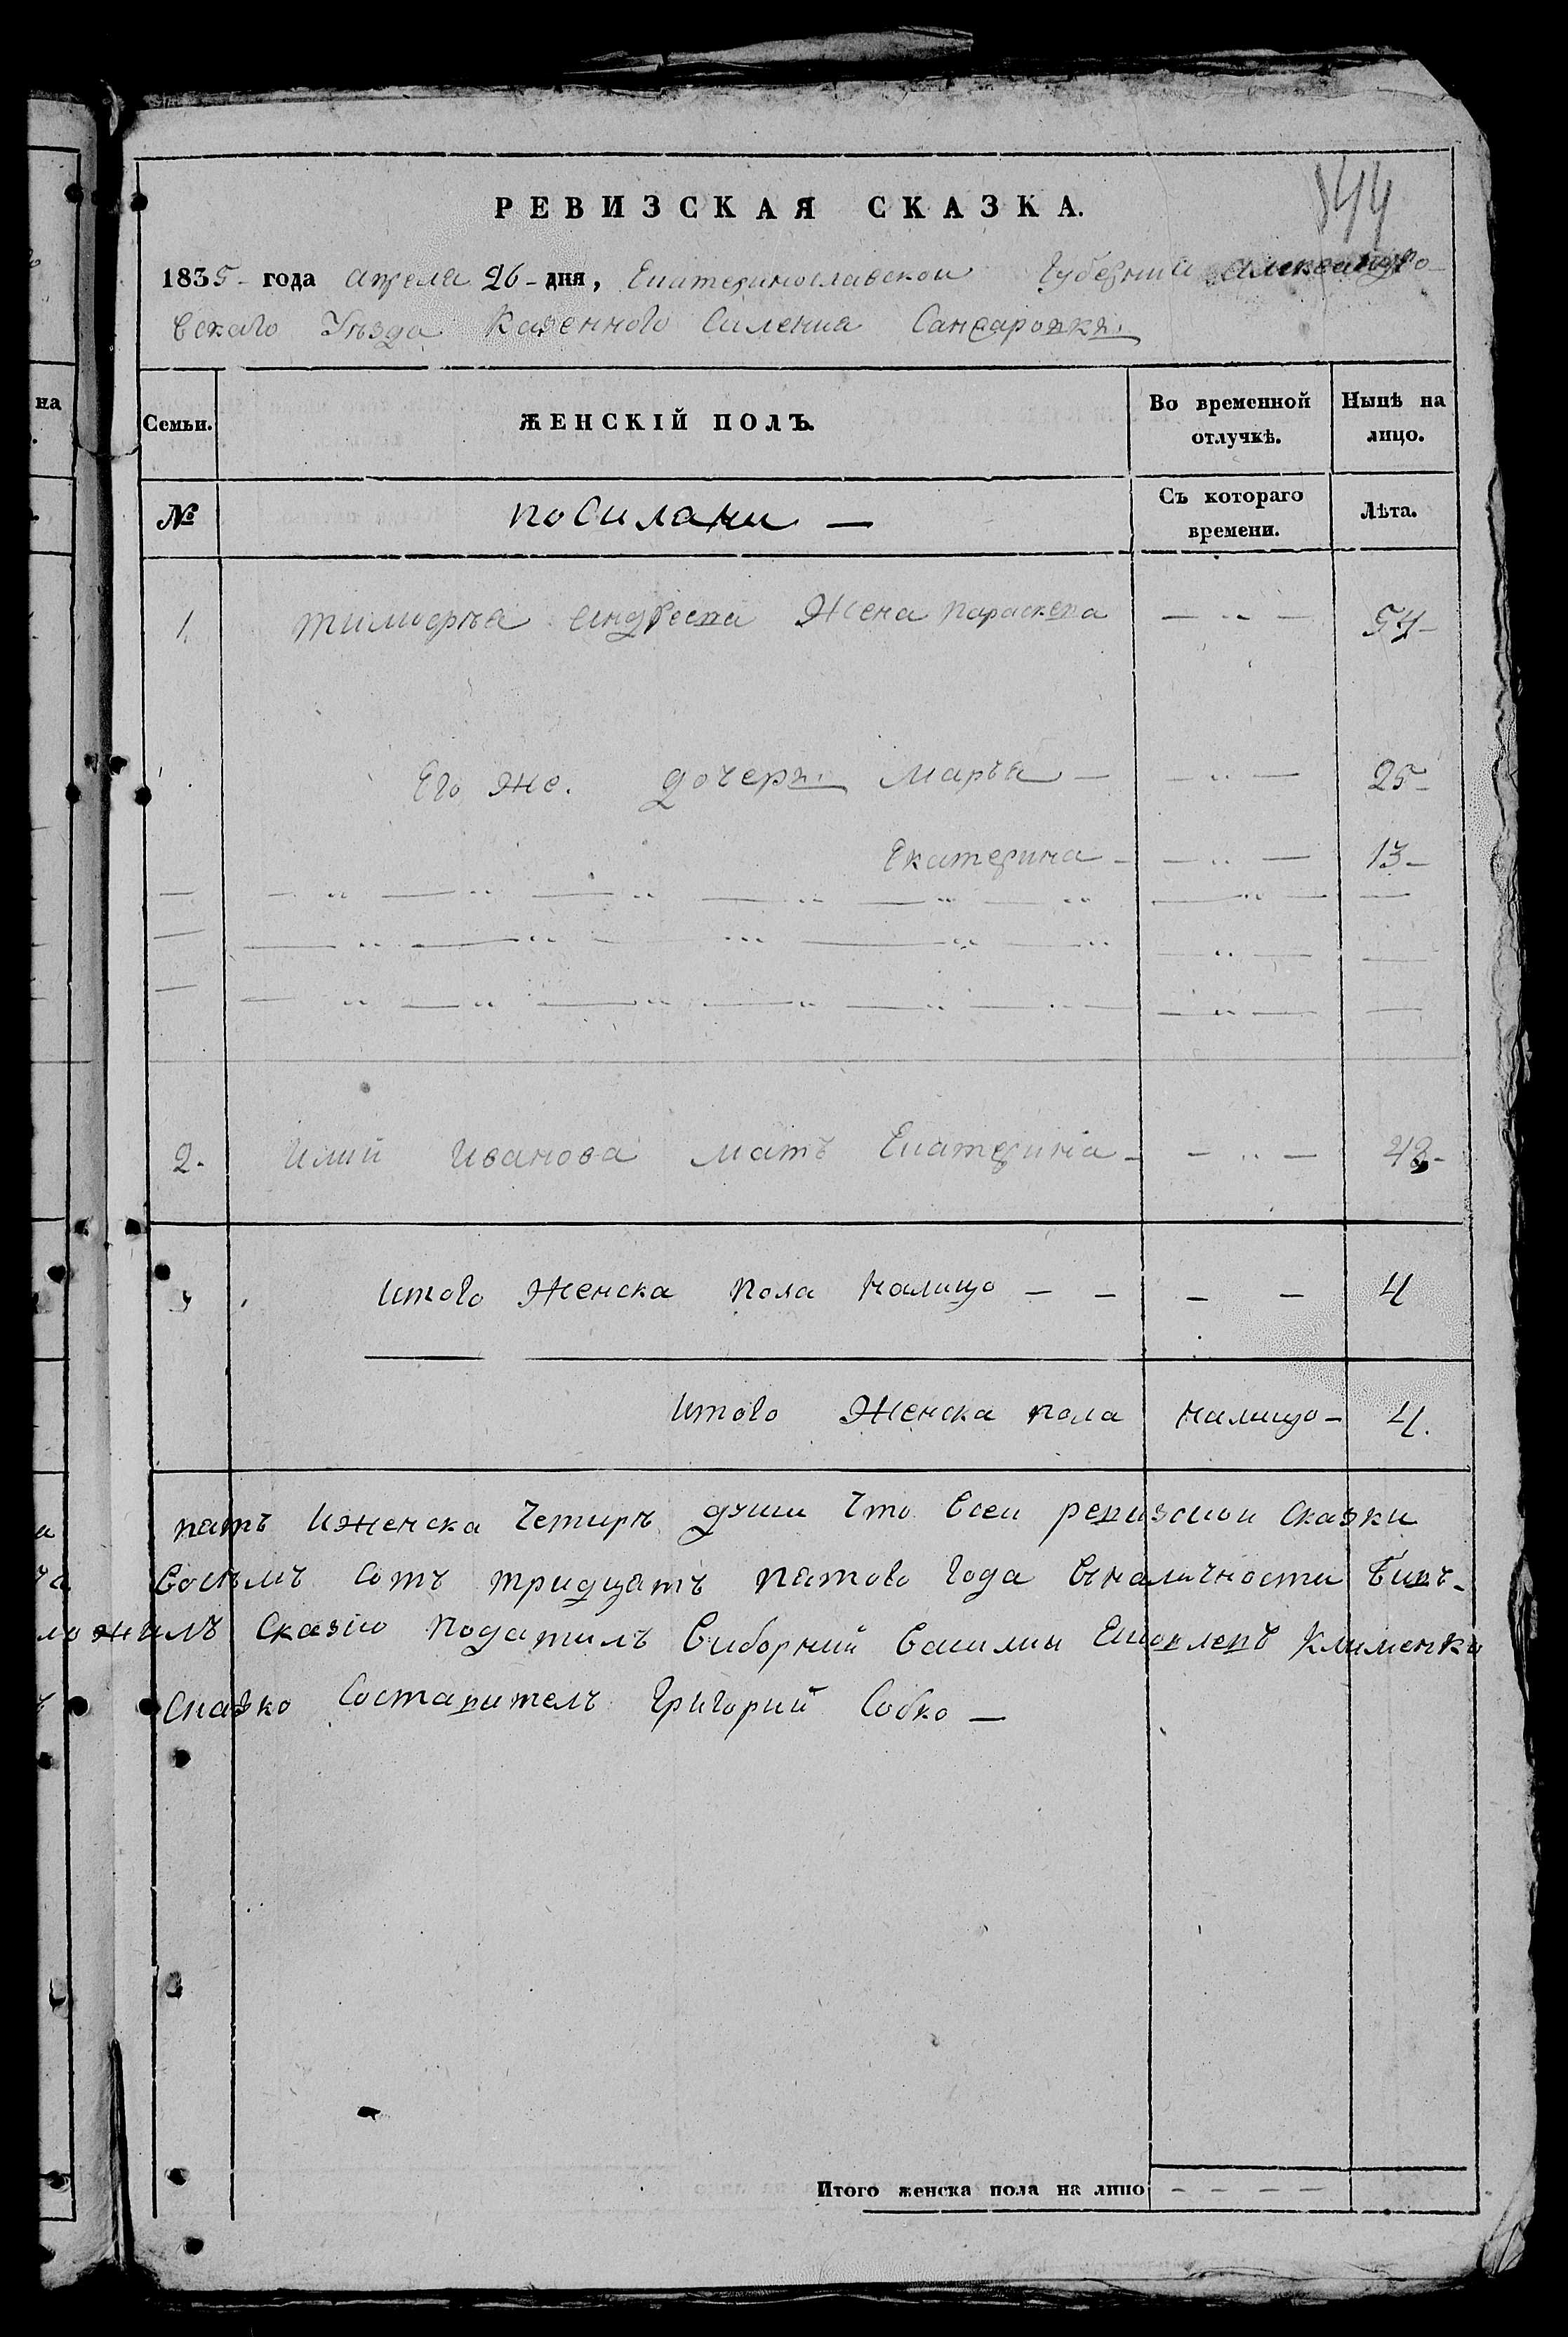 144
РЕВИЗСКАЯ СКАЗКА.
1835 - года апреля 26 - дня, Екатеринославской Губернии Александро-
вскаго Уезда Казенного Силения
Семьи. ЖЕНСКІЙ ПОЛЪ. Во временной отлучкѣ. Нынѣ на лицо.
№ посиляни — Съ котораго времени. Лѣта.
1. тимофея андреева Жена параскева — .. — 54 -
Его же. дочери. маръя — — .. — 25 -
Екатерина - — .. — 13 -
2. Илии Иванова мать Екатерина - — .. — 48 -
итого Женска пола налицо — — — — 4
итого Женска пола налицо - 4.
пять Иженска четыри души что всеи ревизской сказки
восемъ сотъ тридцать пятого года вналичности
сказкю Выборний василии Клименко
Сказко Составителъ Григорий Собко —
Итого женска пола на лицо - - - -
на